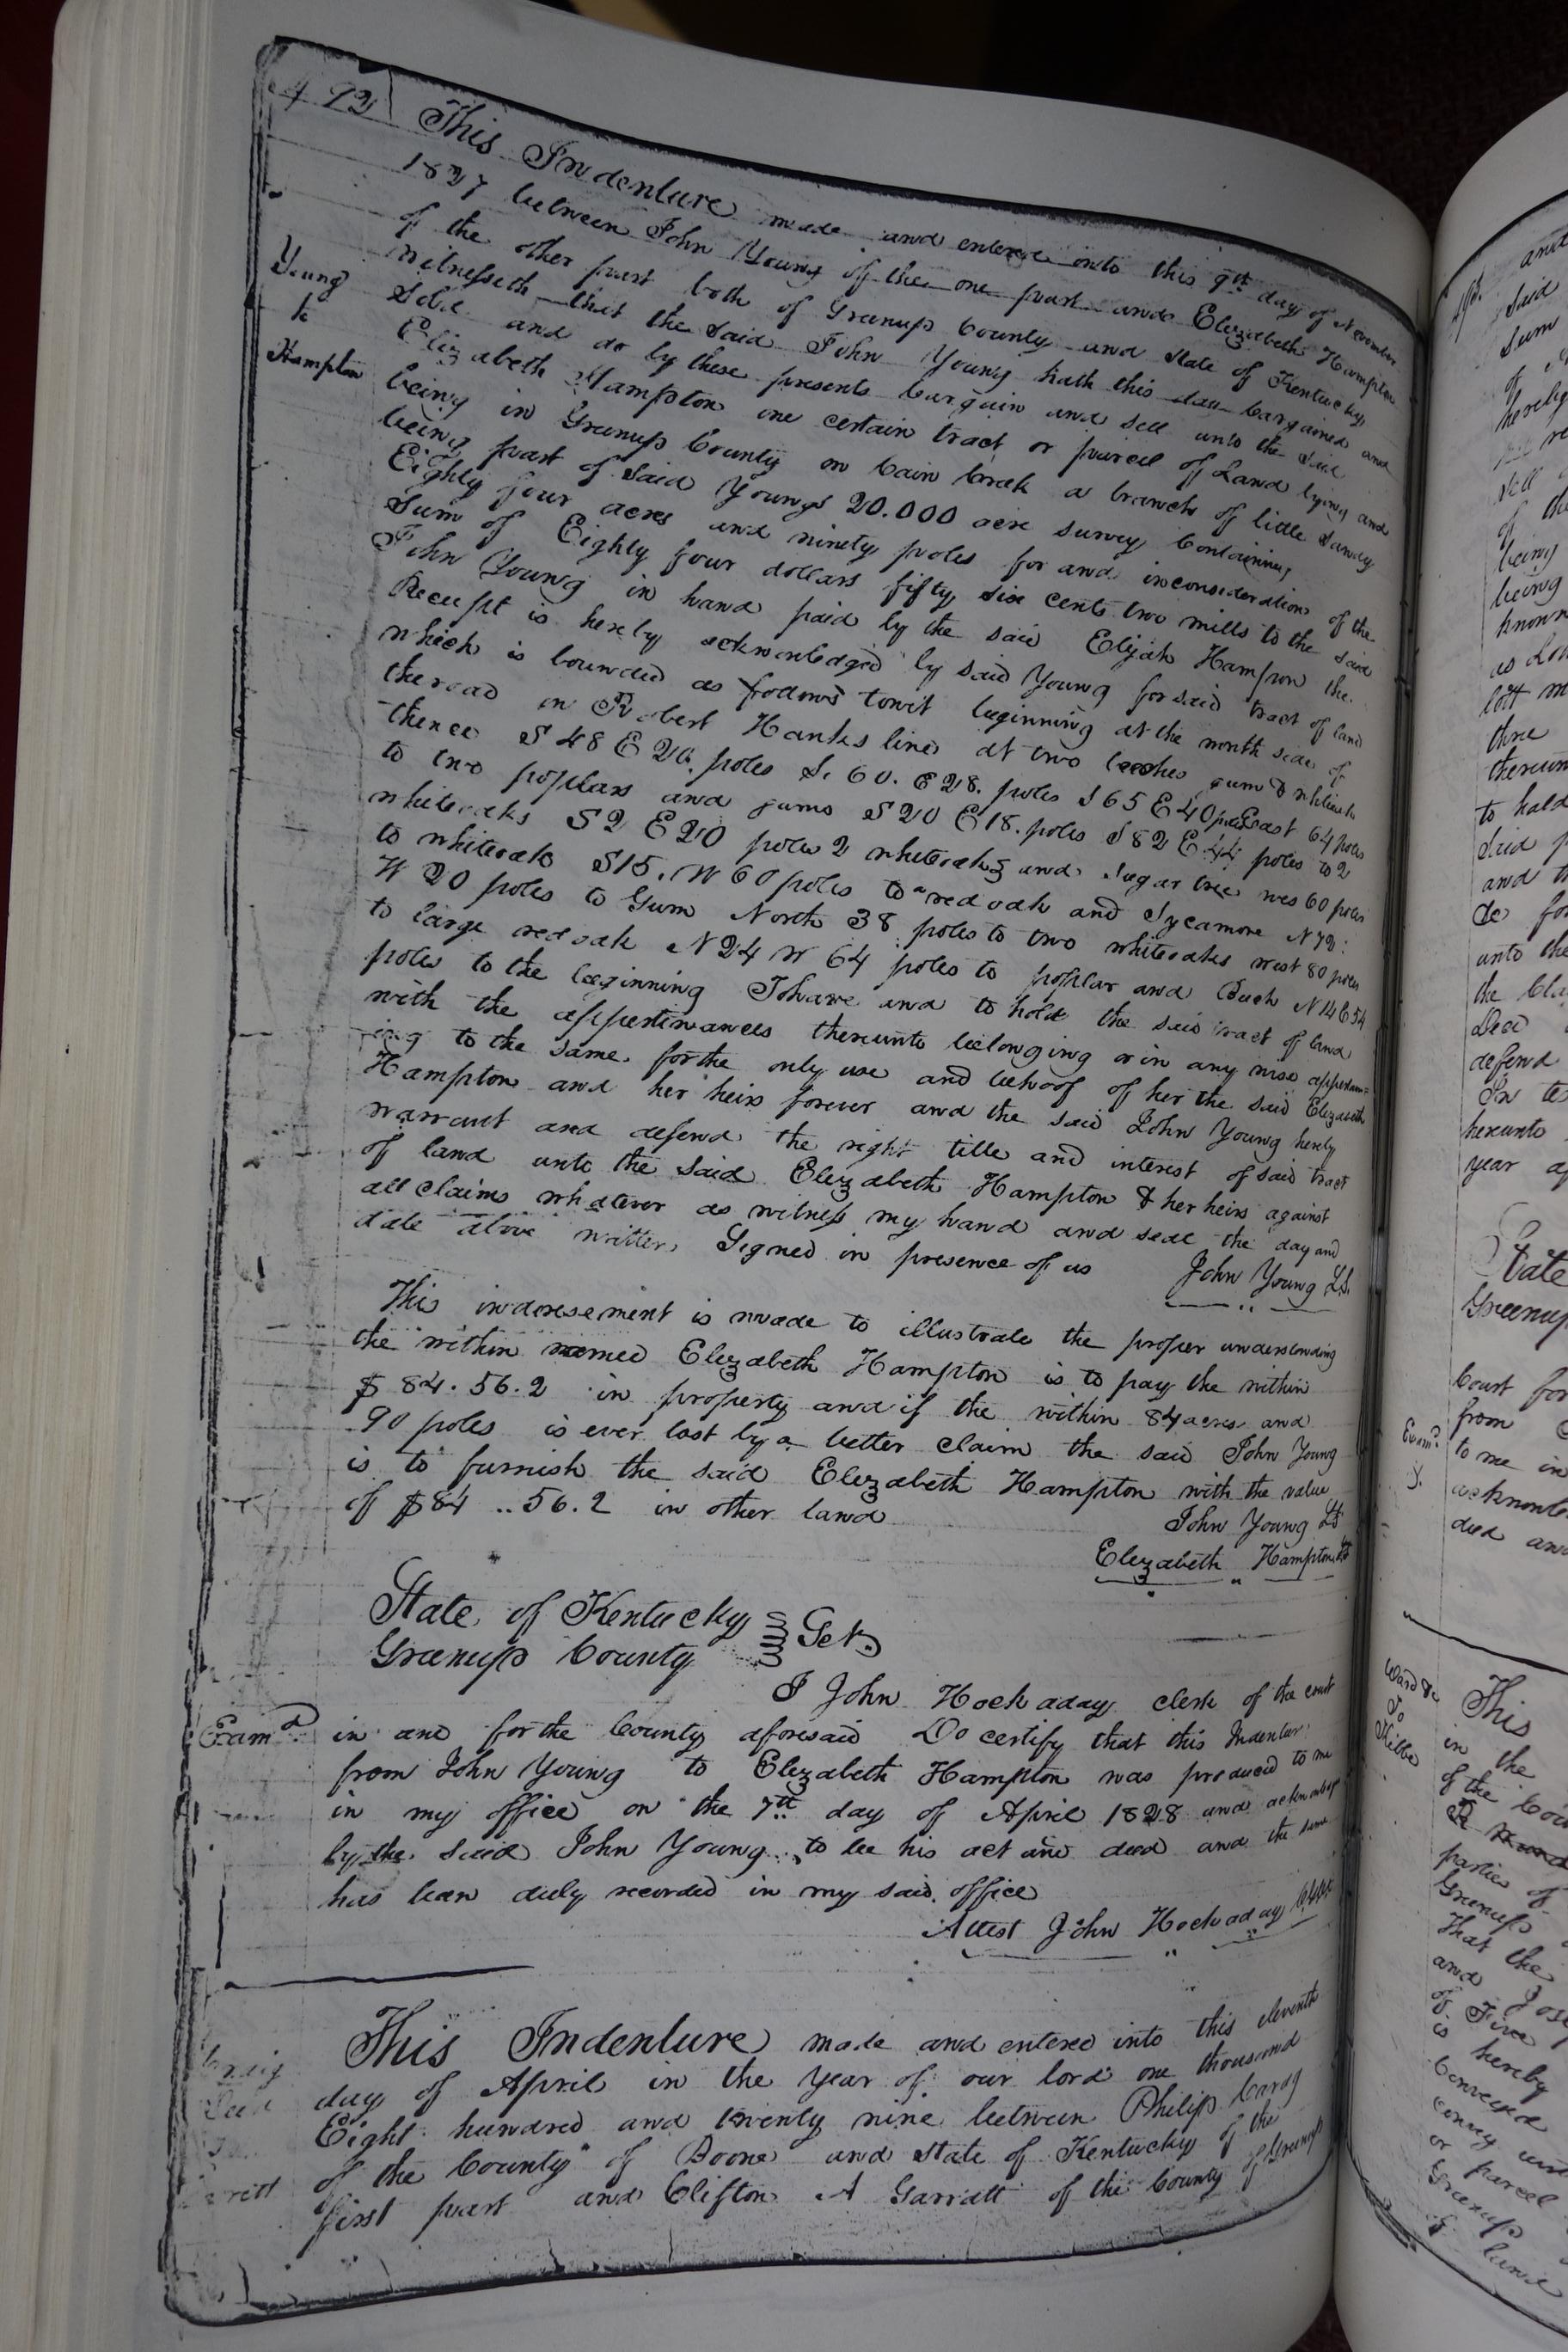 422
This Indenture made and entered into this 9th day of November
1827 between John Young of the one part and Elizabeth Hampton
of the other part both of Greenup County and State of Kentucky
Young
to
Hampton
Witnesseth that the said John Young hath this day bargained and
Sold and do by these presents bargain and sell unto the said
Elizabeth Hampton one certain tract or parcel of Land lying and
being in Greenup County on Cain Creek a branch of little Sandy
being part of said Youngs 20.000 acre survey Containing
Eighty four acres and ninety poles for and inconsideration of the
Sum of Eighty four dollars fifty six cents two mills to the said
John Young in hand paid by the said Elijah Hampton the
Receipt is hereby acknowledged by said Young for said tract of land
which is bounded as follows towit beginning at the north side of
the road in Robert Hanks line at two beeches gum &
thence S 48 E 20. poles S. 60. E 28. poles S 65 E 40 East 64 poles
to two poplars and gums S 20 E 18. poles S 82 E 44 poles to 2
whiteoaks S 2 E 20 poles 2 whiteoaks and Sugar tree wes 60 poles
to whiteoak S 15. W 60 poles to a red oak and Sycamore N 72:
W 20 poles to Gum North 38 poles to two whiteoaks west 80 poles
to large redoak N 24 W 64 poles to poplar and Buch N 14 E 54
poles to the beginning Tohave and to hold the said tract of land
with the appertinances thereunto belonging or in any wise appertain=
ing to the same for the only use and behoof of her the said Elizabeth
Hampton and her heirs forever and the said John Young hereby
warrant and defend the right title and interest of said tract
of land unto the said Elizabeth Hampton & her heirs against
all claims whatever as witness my hand and seal the day and
date above written Signed in presence of us John Young LS.
This indorsement is made to illustrate the proper understanding
the within named Elizabeth Hampton is to pay the within
$ 84. 56. 2 in property and if the within 84 acres and
90 poles is ever lost by a better claim the said John Young
is to furnish the said Elizabeth Hampton with the value
of $84 .. 56. 2 in other land
John Young LS
Elizabeth Hampton LS
State of Kentucky
Greenup County Sct.
I John Hockaday clerk of the court
Exam.d in and for the County aforesaid Do certify that this Indentur
from John Young to Elizabeth Hampton was produced to me
in my office on the 7th day of April 1828 and
by the said John Young to be his act and deed and the same
has been duly recorded in my said office
Attest John Hockaday Clk
This Indenture made and entered into this eleventh
day of April in the year of our lord one thousand
Eight hundred and twenty nine between Philip
of the County of Boone and State of Kentucky of the
first part and Clifton A Garratt of the County of Greenup
and
Said
Sum
of
hereby
sell
of the
being
being
known
as
three
thereun
to hold
Said p
and
unto the
the Cla
defend
In tes
hereunto
year
State
Greenup
Court for
from
Exam.d
to me in
acknowle
deed an
Ward &c
To
This
in the
of the Cou
parties of
Greenup
That the
and Jose
of Five
is hereby
Conveyed
convey unt
or parcel
Greenup
land